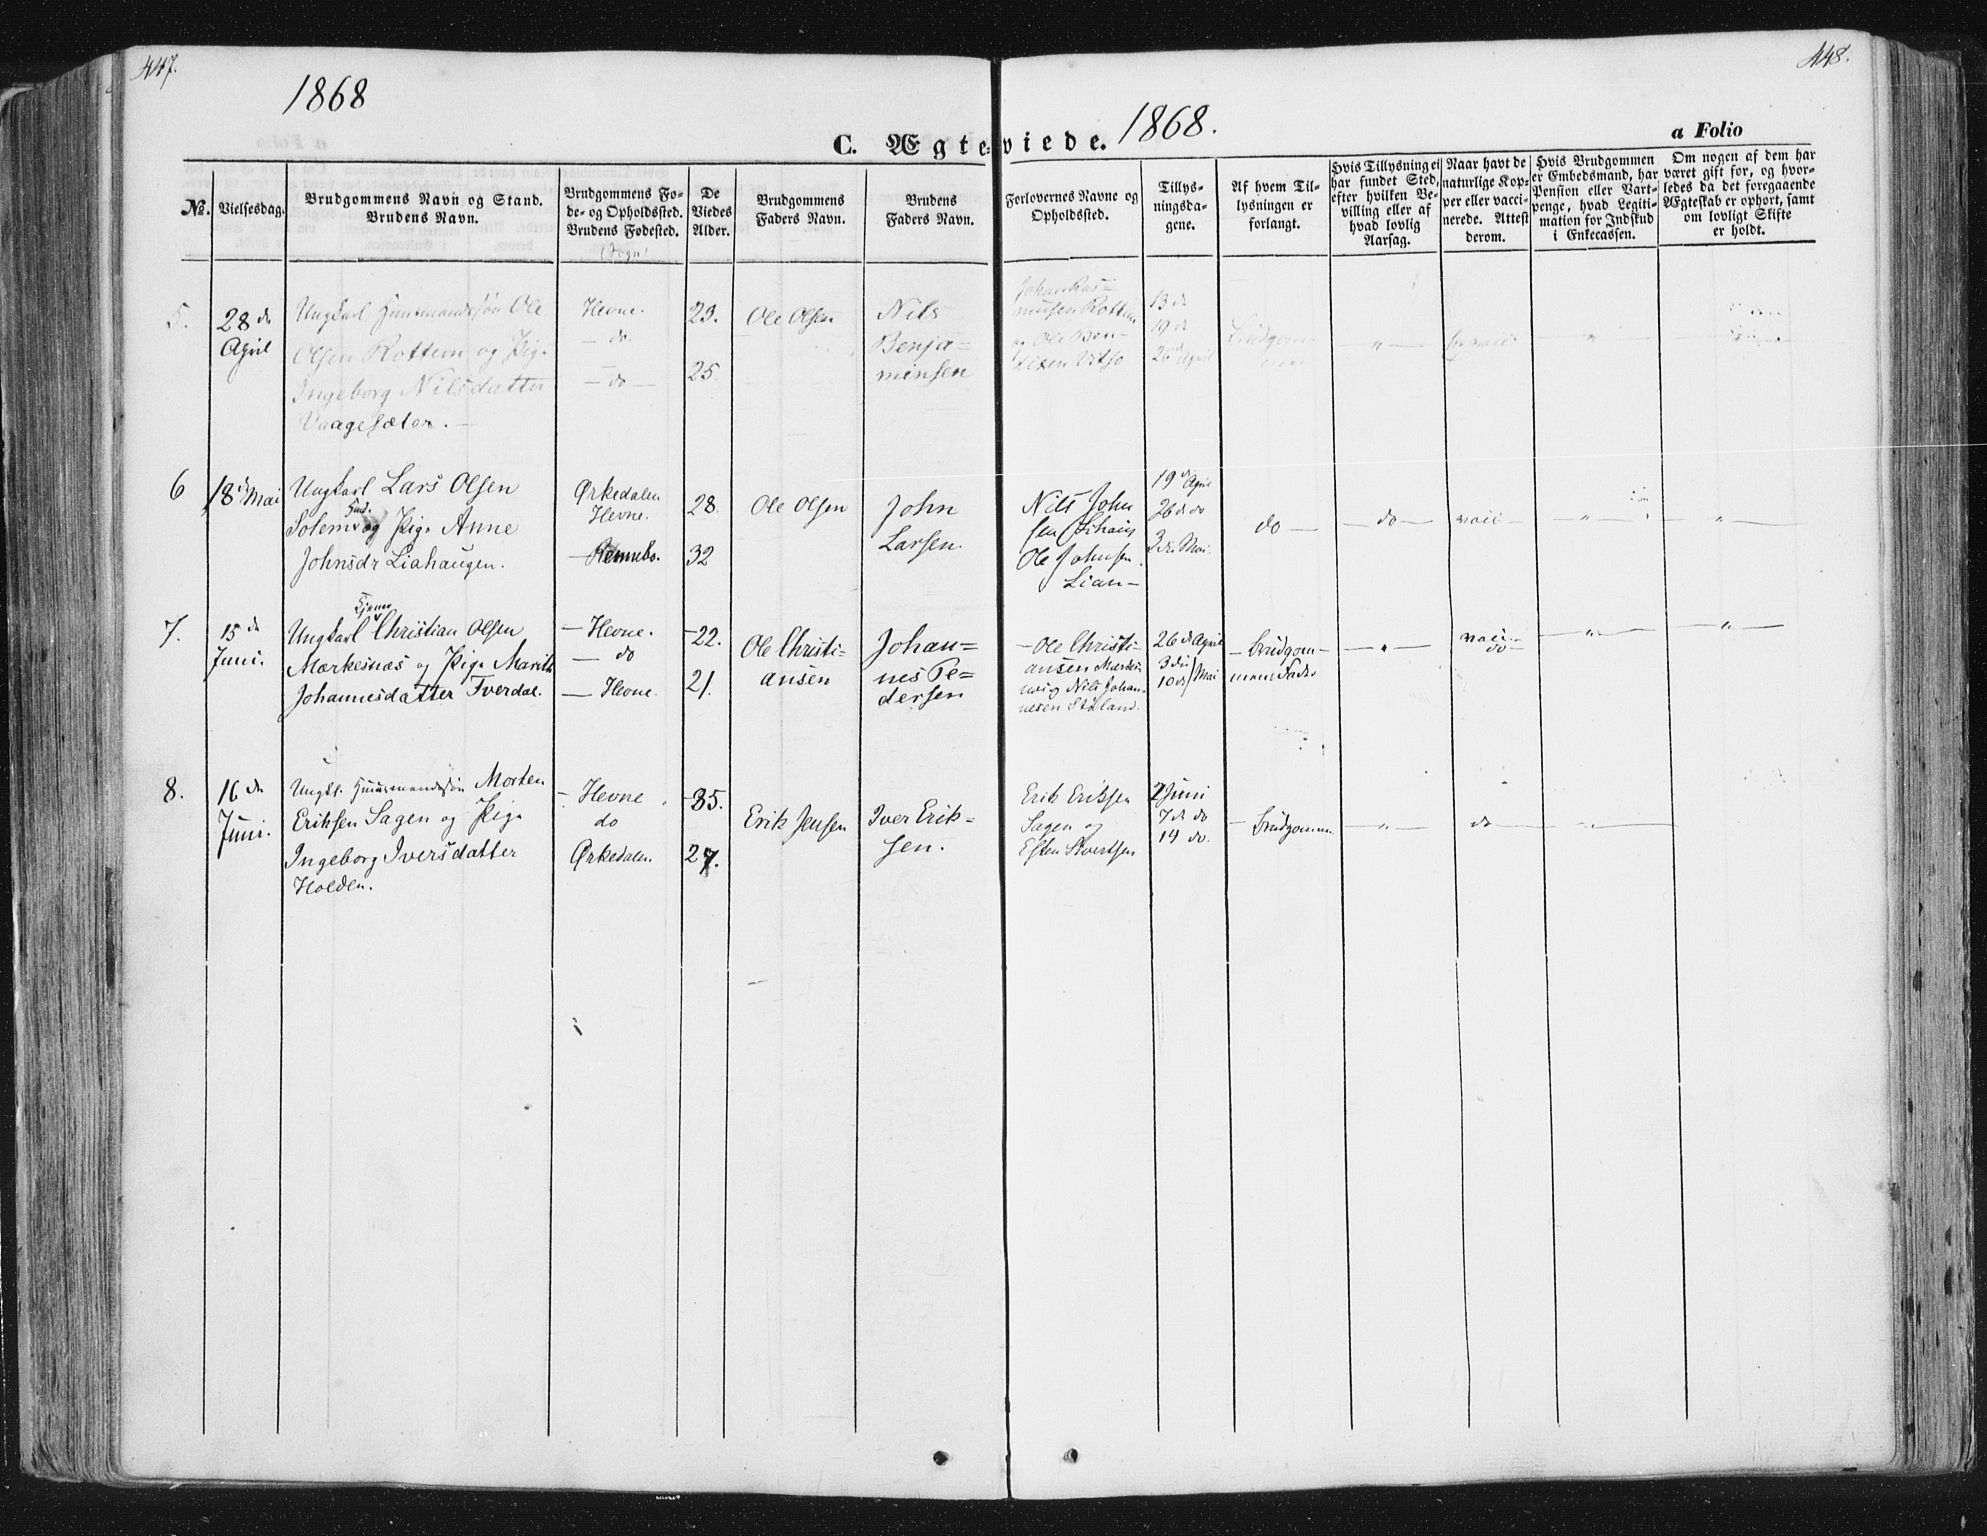 447.
448.
1868
1868.
C. Ægteviede.
a Folio
No.
Vielsesdag.
Brudgommens Navn og Stand.
Brudens Navn.
Brudgommens Fø-
de- og Opholdssted.
Brudens Fødested.
(Sogn)
De
Viedes
Alder.
Brudgommens
Faders Navn.
Brudens
Faders Navn.
Forlovernes Navne og
Opholdssted.
Tillys-
ningsda-
gene.
Af hvem Til-
lysningen er
forlangt.
Hvis Tillysning ei
har fundet Sted,
efter hvilken Be-
villing eller af
hvad lovlig
Aarsag.
Naar havt de
naturlige Kop-
per eller vacci-
nerede. Attest
derom.
Hvis Brudgommen
er Embedsmand, har
Pension eller Vart-
penge, hvad Legiti-
mation for Indskud
i Enkecassen.
Om nogen af dem har
været gift før, og hvor-
ledes da det foregaaende
Ægteskab er ophørt, samt
om lovligt Skifte
er holdt.
5.
28 de
April
Ungkarl Huusmandssøn Ole
Olsen Rottem og Pige
Ingeborg Nilsdatter
Vaagesæter. —
Hevne.
— do.
— do —
23.
25.
Ole Olsen
Nils
Benja=
minsen
Johan Ras=
mussen Rottem
og Ole Ben-
Vitsø
13 de
19 d
26 d April
Brudgom-
men
— " —
— " —
6
18 d Mai
Ungkarl Lars Olsen
Solem og Pige Anne
Johnsdr Liahaugen.
Ørkedalen
Hevne.
— Rennebo.
28.
32
Ole Olsen
John
Larsen.
Nils John
sen Lihaug
Ole Johnsen
Lian —
19 d April
26 d do
3 di Mai.
do —
— do —
vacc —
— " —
— " —
7.
15 de
Juni.
Ungkarl Christian Olsen
Mærkesnæs og Pige Marith
Johannesdatter Tverdal.
— Hevne.
— do
— Hevne.
— 22.
21.
Ole Christi-
ansen
Johan=
nes Pe=
dersen
— Ole Christi-
ansen Mærkes-
og Nils Johan-
nesen Støland.
26 d April
3 die
10 d / Mai
— Brudgom —
mens Fader
— " —
vacc. —
do —
— " —
— " —
8.
16 de
Juni.
Ungk. Huusmandssøn Morten
Eriksen Sagen og Pige
Ingeborg Iversdatter
Holden.
— Hevne
do
Ørkedalen.
— 35.
27.
Erik Jensen
Iver Erik=
sen.
Erik Eriksen
Sagen og
Esten Sivertsen
2 Juni
7 d do
14 do.
— Brudgommen
— " —
do —
— " —